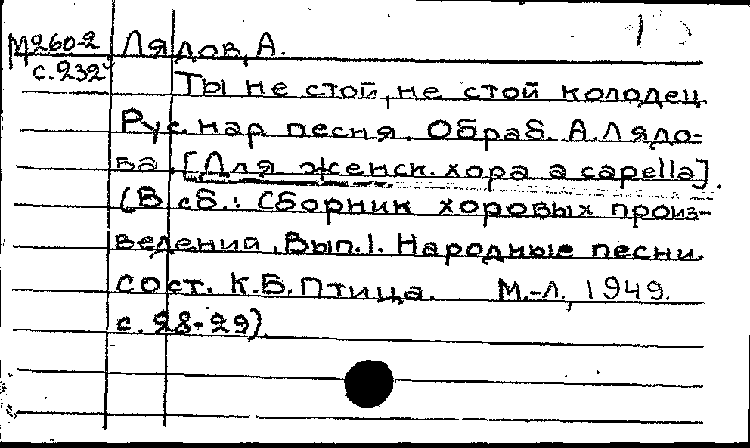 М260-2 Лядов, А.
с.232
Ты не стой, не стой колодец
Рус. нар песня. Обраб. А. Лядо-
ва. [Для женск. хора a capella].
(В сб.: Сборник хоровых произ-
ведений. Вып.1. Народные песни.
сост. К.Б. Птица. М.-Л., 1949.
с. 28-29)